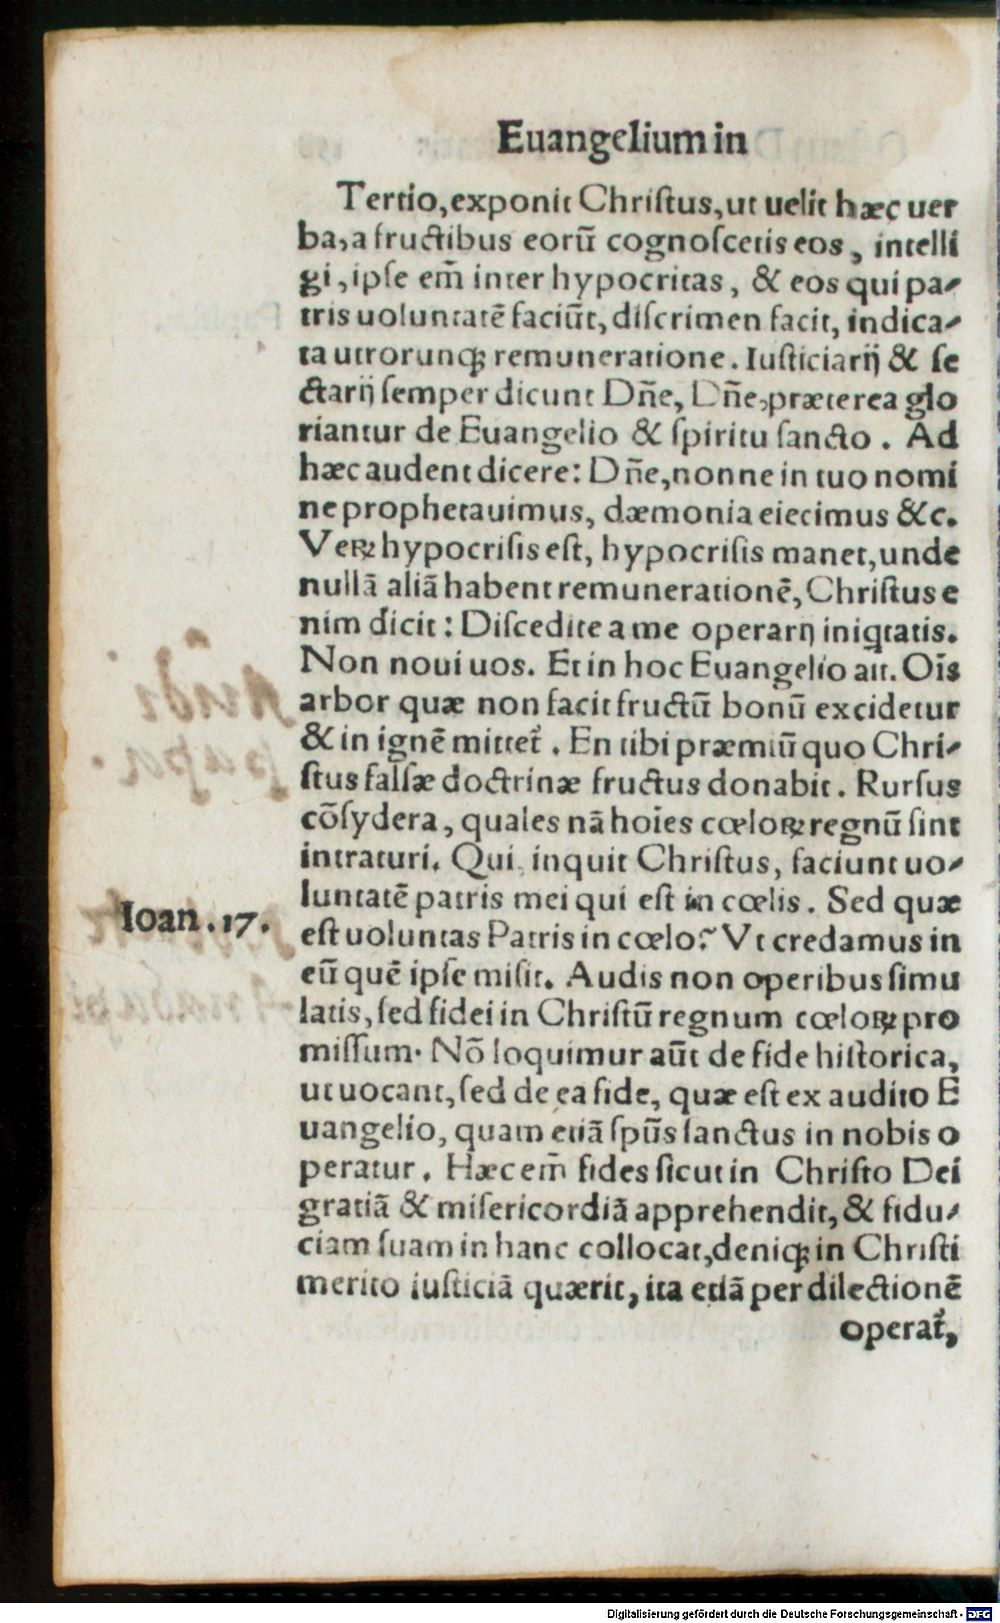 Euangelium in
Tertio, exponit Chriſtus, ut uelit hæc uer
ba, a fructibus eorũ cognoſcetis eos, intelli
gi, ipſe em̃ inter hypocritas, & eos qui pa⸗
tris uoluntatẽ faciũt, diſcrimen facit, indica⸗
ta utrorunqꝫ remuneratione. Iuſticiarij & ſe
ctarij ſemper dicunt Dñe, Dñe, præterea glo
riantur de Euangelio & ſpiritu ſancto. Ad
hæc audent dicere: Dñe, nonne in tuo nomi
ne prophetauimus, dæmonia eiecimus &c.
Veꝝ hypocriſis eſt, hypocriſis manet, unde
nullã aliã habent remunerationẽ, Chriſtus e
nim dicit: Diſcedite a me operarij iniq̃tatis.
Non noui uos. Et in hoc Euangelio ait. Oĩs
arbor quæ non facit fructũ bonũ excidetur
& in ignẽ mittet᷑. En tibi præmiũ quo Chri⸗
ſtus falſæ doctrinæ fructus donabit. Rurſus
cõſydera, quales nã hoĩes cœloꝝ regnũ ſint
intraturi. Qui, inquit Chriſtus, faciunt uo⸗
luntatẽ patris mei qui eſt in cœlis. Sed quæ
Ioan. 17.
eſt uoluntas Patris in cœlo? Vt credamus in
eũ quẽ ipſe miſit. Audis non operibus ſimu
latis, ſed fidei in Chriſtũ regnum cœloꝝ pro
miſſum. Nõ loquimur aũt de fide hiſtorica,
ut uocant, ſed de ea fide, quæ eſt ex audito E
uangelio, quam etiã ſpũs ſanctus in nobis o
peratur. Hæc em̃ fides ſicut in Chriſto Dei
gratiã & miſericordiã apprehendit, & fidu⸗
ciam ſuam in hanc collocat, deniqꝫ in Chriſti
merito iuſticiã quærit, ita etiã per dilectionẽ
operat᷑,
Digitalisierung gefördert durch die Deutsche Forschungsgemeinschaft - DFG